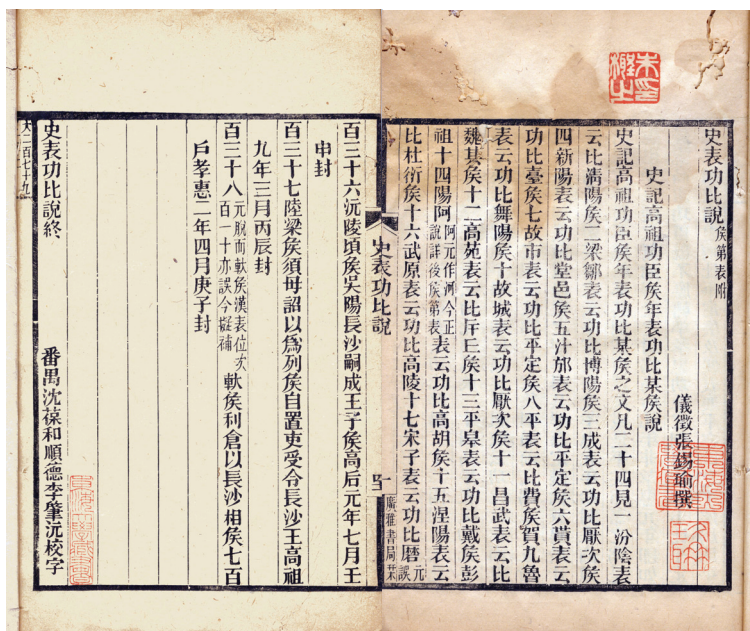 史表功比說 矦第表附
儀徵張錫瑜撰
史記高祖功臣矦年表功比某矦說
史記高祖功臣矦年表功比某矦之文凡二十四見一汾陰表
云比淸陽矦二梁鄒表云功比博陽矦三成表云功比厭次矦
四新陽表云功比堂邑矦五汁邡表云功比平定矦六貰表云
功比臺矦七故市表云功比平定矦八平表云比費矦賀九魯
表云功比舞陽矦十故城表云功比厭次矦十一昌武表云比
魏其矦十二高苑表云比斥丘矦十三平皋表云功比戴矦彭
祖十四陽阿 阿元作河今正說詳後矦第表 表云功比高胡矦十五涅陽表云
比杜衍矦十六武原表云功比高陵十七宋子表云功比磨 元誤
史表功比說
廣雅書局栞
百三十六沅陵頃矦吳陽長沙嗣成王子矦高后元年七月壬
申封
百三十七陸梁矦須毋詔以爲列矦自置吏受令長沙王高祖
九年三月丙辰封
百三十八 元脫而軑矦漢表位次百一十亦誤今擬補 軑矦利倉以長沙相矦七百
戶孝惠二年四月庚子封
史表功比說終
番禺沈葆和順德李肇沅校字
大二百七十九